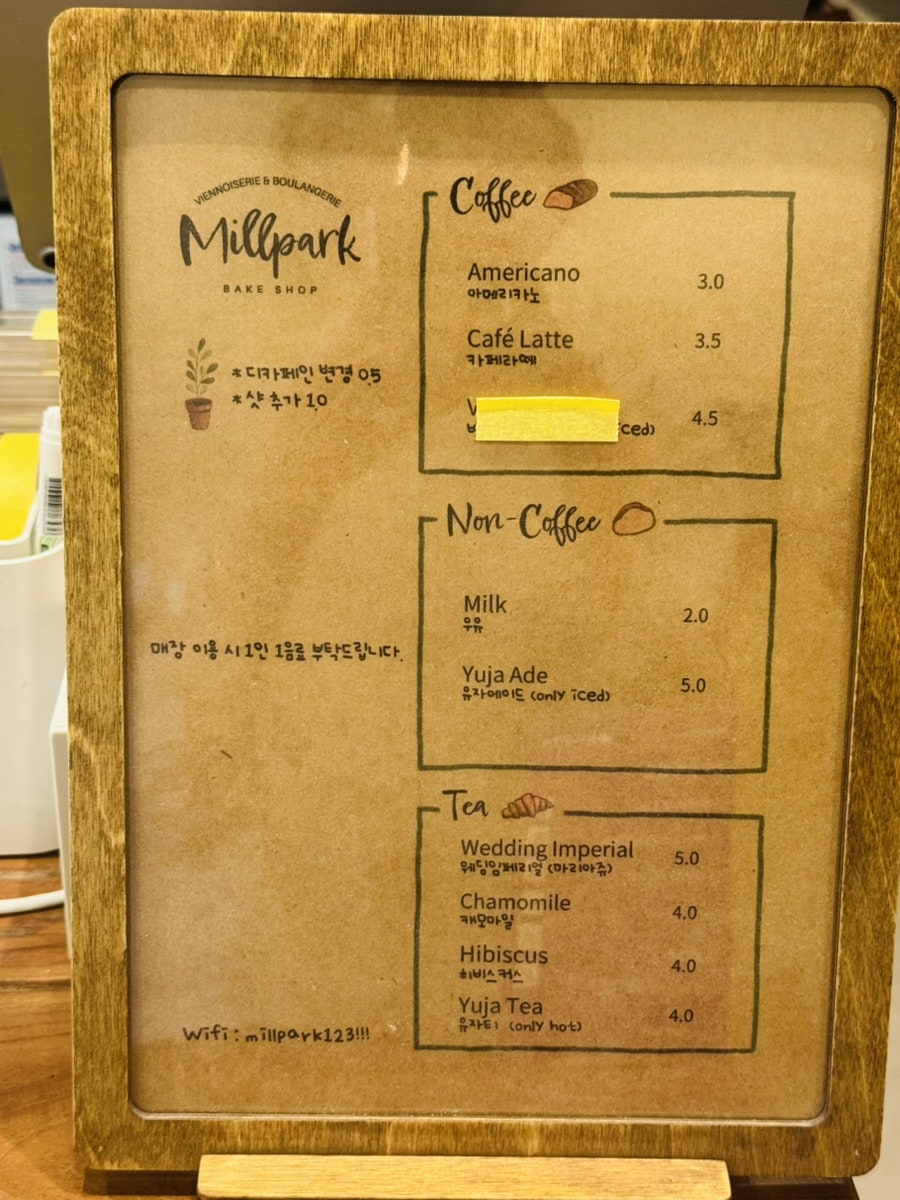 VIENNOISERIE & BOULANGERIE
Millpark
BAKE SHOP
*디카페인 변경 0.5
*샷 추가 1.0
매장 이용 시 1인 1음료 부탁드립니다.
Wifi : millpark123!!!
Coffee
Americano 3.0
아메리카노
Café Latte 3.5
카페라떼
4.5
iced)
Non-Coffee
Milk 2.0
우유
Yuja Ade 5.0
유자에이드 (only iced)
Tea
Wedding Imperial 5.0
웨딩임페리얼 (마리아쥬)
Chamomile 4.0
캐모마일
Hibiscus 4.0
히비스커스
Yuja Tea 4.0
유자티 (only hot)